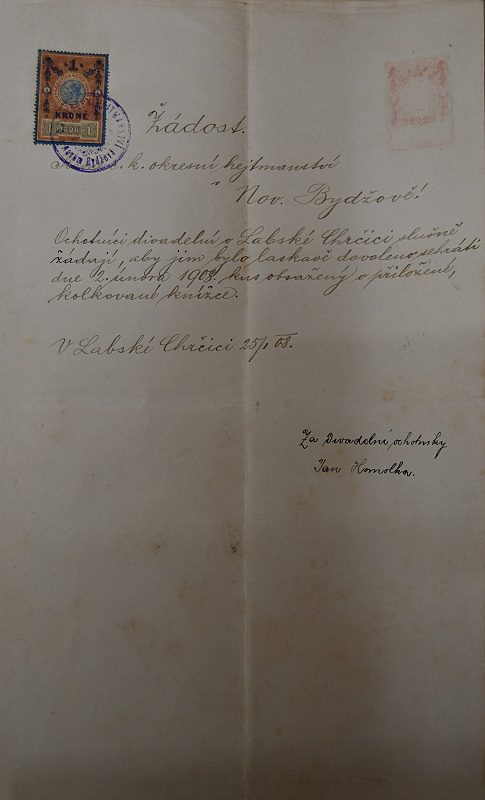 1
KRONE
1898
Žádost.
k. okresní hejtmanství
v Nov. Bydžově!
Ochotníci divadelní v Labské Chrčici slušně
žádají, aby jim bylo laskavě dovoleno sehráti
dne 2. února 1908. kus obsažený v přiložené,
kolkované knížce.
V Labské Chrčici 25/1 08.
Za Divadelní ochotníky
Jan Homolka.